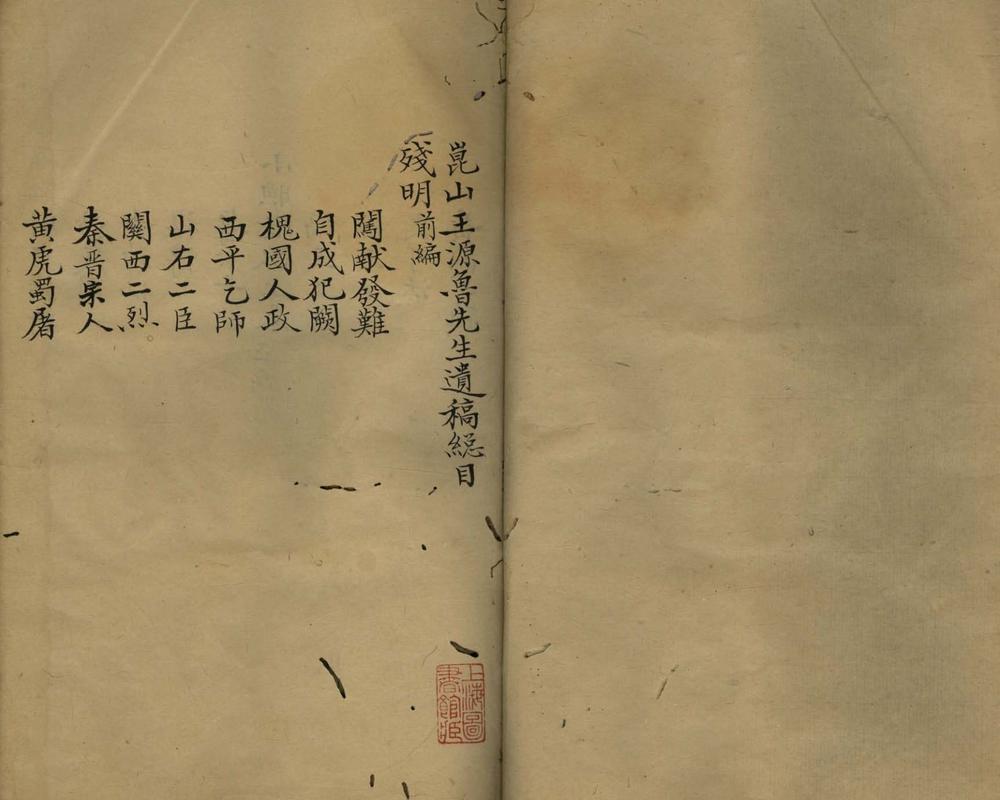 崑山王源魯先生遺稿総目
殘明前編
闖献發難
自成犯闕
槐國人政
西平乞師
山右二臣
闗西二烈
秦晋宗人
黄虎蜀屠
上海圖書館藏